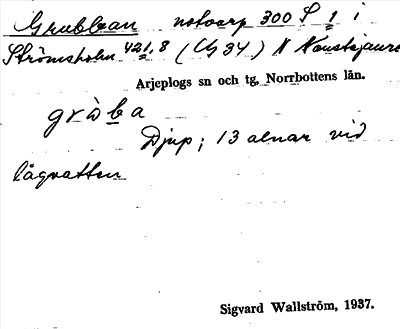 Grubban notvarp 300 S 1 i
Strömsholm 421,8 (Cg 34) N Naustajaure
Arjeplogs sn och tg. Norrbottens län.
grùba
Djup; 13 alnar vid
lågvatten
Sigvard Wallström, 1937.